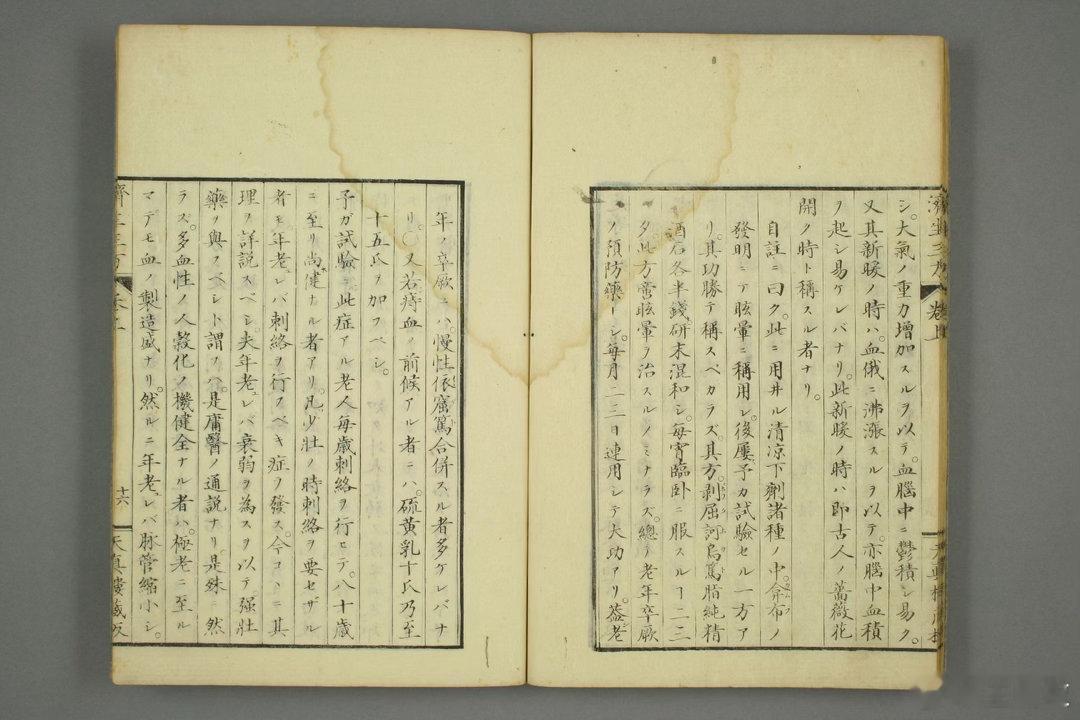 シ。大氣ノ重力增加スルヲ以テ。血腦中ニ鬱積シ易ク。
又其新暖ノ時ハ。血俄ニ沸漲スルヲ以テ。亦腦中血積
ヲ起シ易ケレバナリ。此新暖ノ時ハ即古人ノ薔薇花
開クノ時ト稱スル者ナリ。
自註ニ曰ク。此ニ用井ル清凉下劑諸種ノ中。
發明ニテ眩暈ニ稱用シ。後屢予カ試驗セル一方ア
リ。其功勝テ稱スベカラズ。其方。剥屈訶烏篤脂純精
酒石各半錢研末混和シ。每宵臨卧ニ服スルヿ二三
夕。此方啻眩暈ヲ治スルノミナラズ。總テ老年卒厥
ノ預防藥トシ。每月二三日連用シテ大功アリ。蓋老
年ノ卒厥ニハ。慢性依窟篤合併スル者多ケレバナ
リ。〇又若痔血ノ前候アル者ニハ。硫黄乳十氏乃至
十五氏ヲ加フベシ。
予ガ試驗ニ此症アル老人每歲刺絡ヲ行ヒテ。八十歲
ニ至リ尚健ナル者アリ。凡少壯ノ時刺絡ヲ要セザル
者モ年老レバ刺絡ヲ行スベキ症ヲ發ス。今コヽニ其
理ヲ詳説スベシ。夫年老レバ衰弱ヲ為スヲ以テ强壯
藥ヲ與フベシト謂フハ。是庸醫ノ通説ナリ。是殊ニ然
ラズ。多血性ノ人榖化ノ機健全ナル者ハ。極老ニ至ル
マデモ血ノ製造盛ナリ。然ルニ年老レバ脉管縮小シ。
十六
天真樓藏版